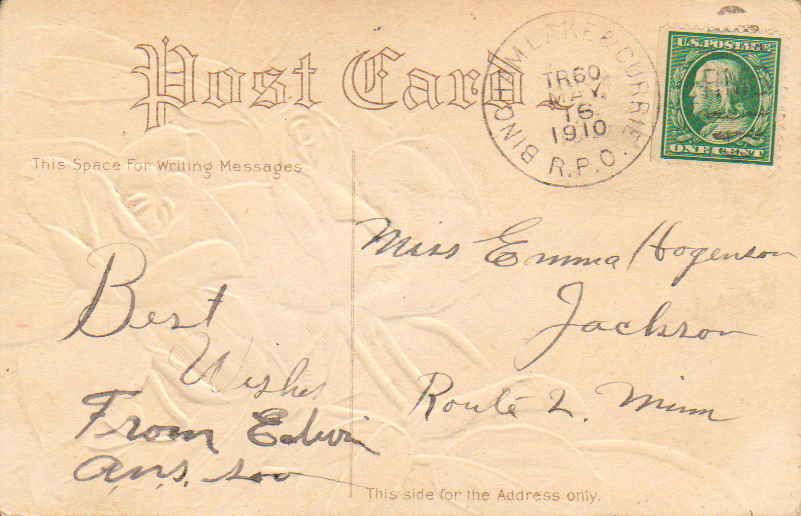 Post Card
BINGHAM LAKE & CURRIE
TR60
MAY
16
1910
R.P.O.
U.S. POSTAGE
ONE CENT
This Space For Writing Messages
Miss Emma Hogenson
Jackson
Route 2. Minn
Best
Wishes
From Edwin
Ans. soo
This side for the Address only.